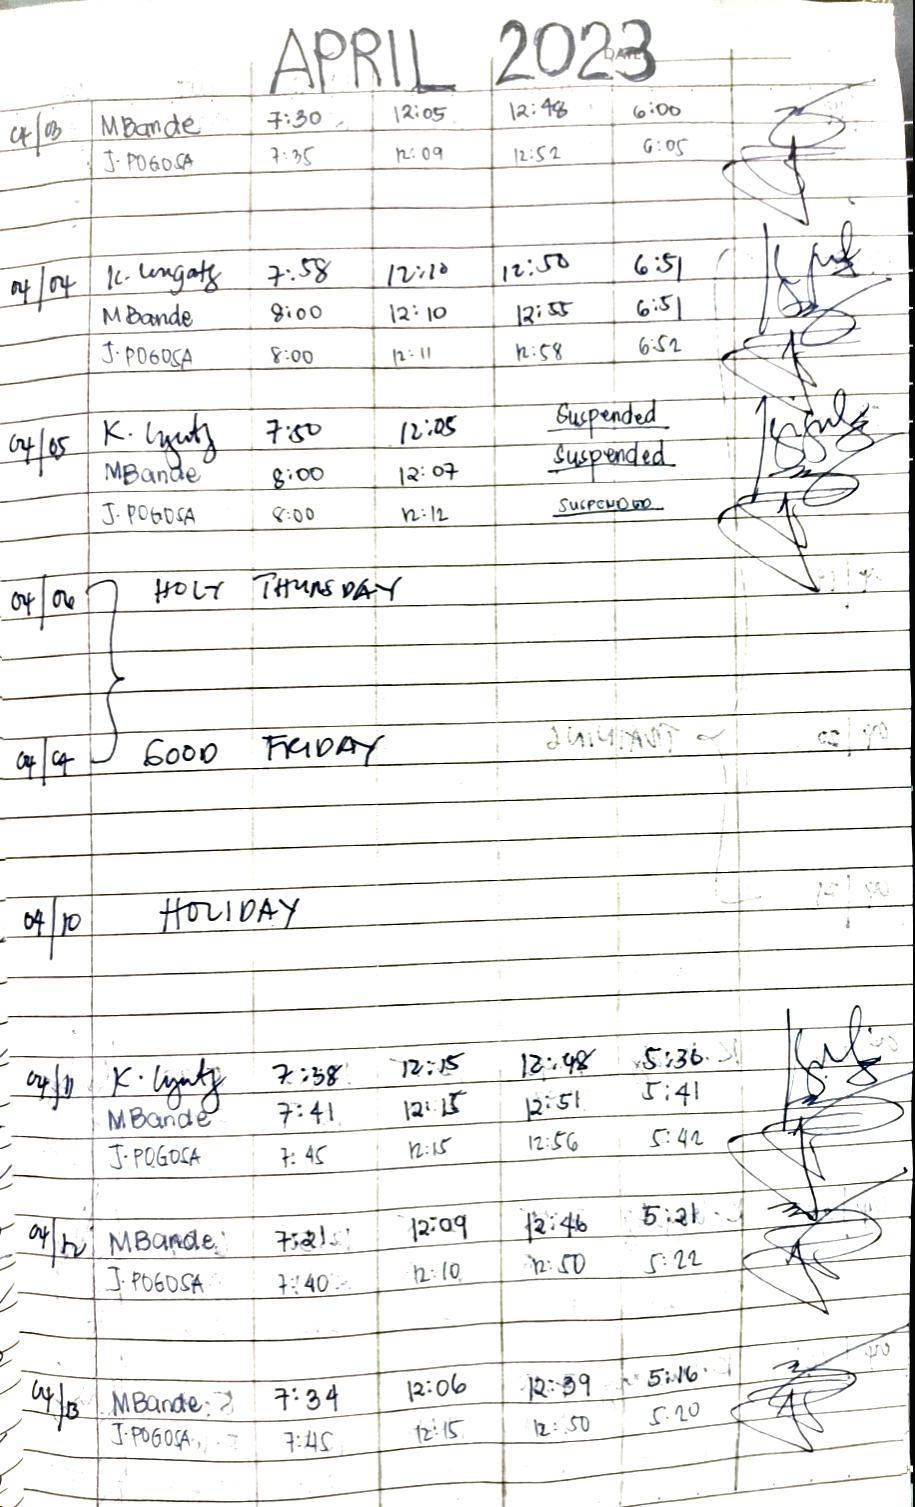 APRIL 2023
DATE
04/03 MBande 7:30 12:05 12:48 6:00
J. POGOSA 7:35 12:09 12:52 6:05
04/04 K. 7:58 12:10 12:50 6:51
MBande 8:00 12:10 12:55 6:51
J. POGOSA 8:00 12:11 12:58 6:52
04/05 K. 7:50 12:05 Suspended
MBande 8:00 12:07 Suspended
J. POGOSA 8:00 12:12 SUSPENDED
04/06 HOLY THURSDAY
GOOD FRIDAY
04/10 HOLIDAY
04/11 K. 7:38 12:15 12:48 5:36
MBande 7:41 12:15 12:51 5:41
J. POGOSA 7:45 12:15 12:56 5:42
04/12 MBande 7:21 12:09 12:46 5:21
J. POGOSA 7:40 12:10 12:50 5:22
04/13 MBande 7:34 12:06 12:39 5:16
J. POGOSA 7:45 12:15 12:50 5:20